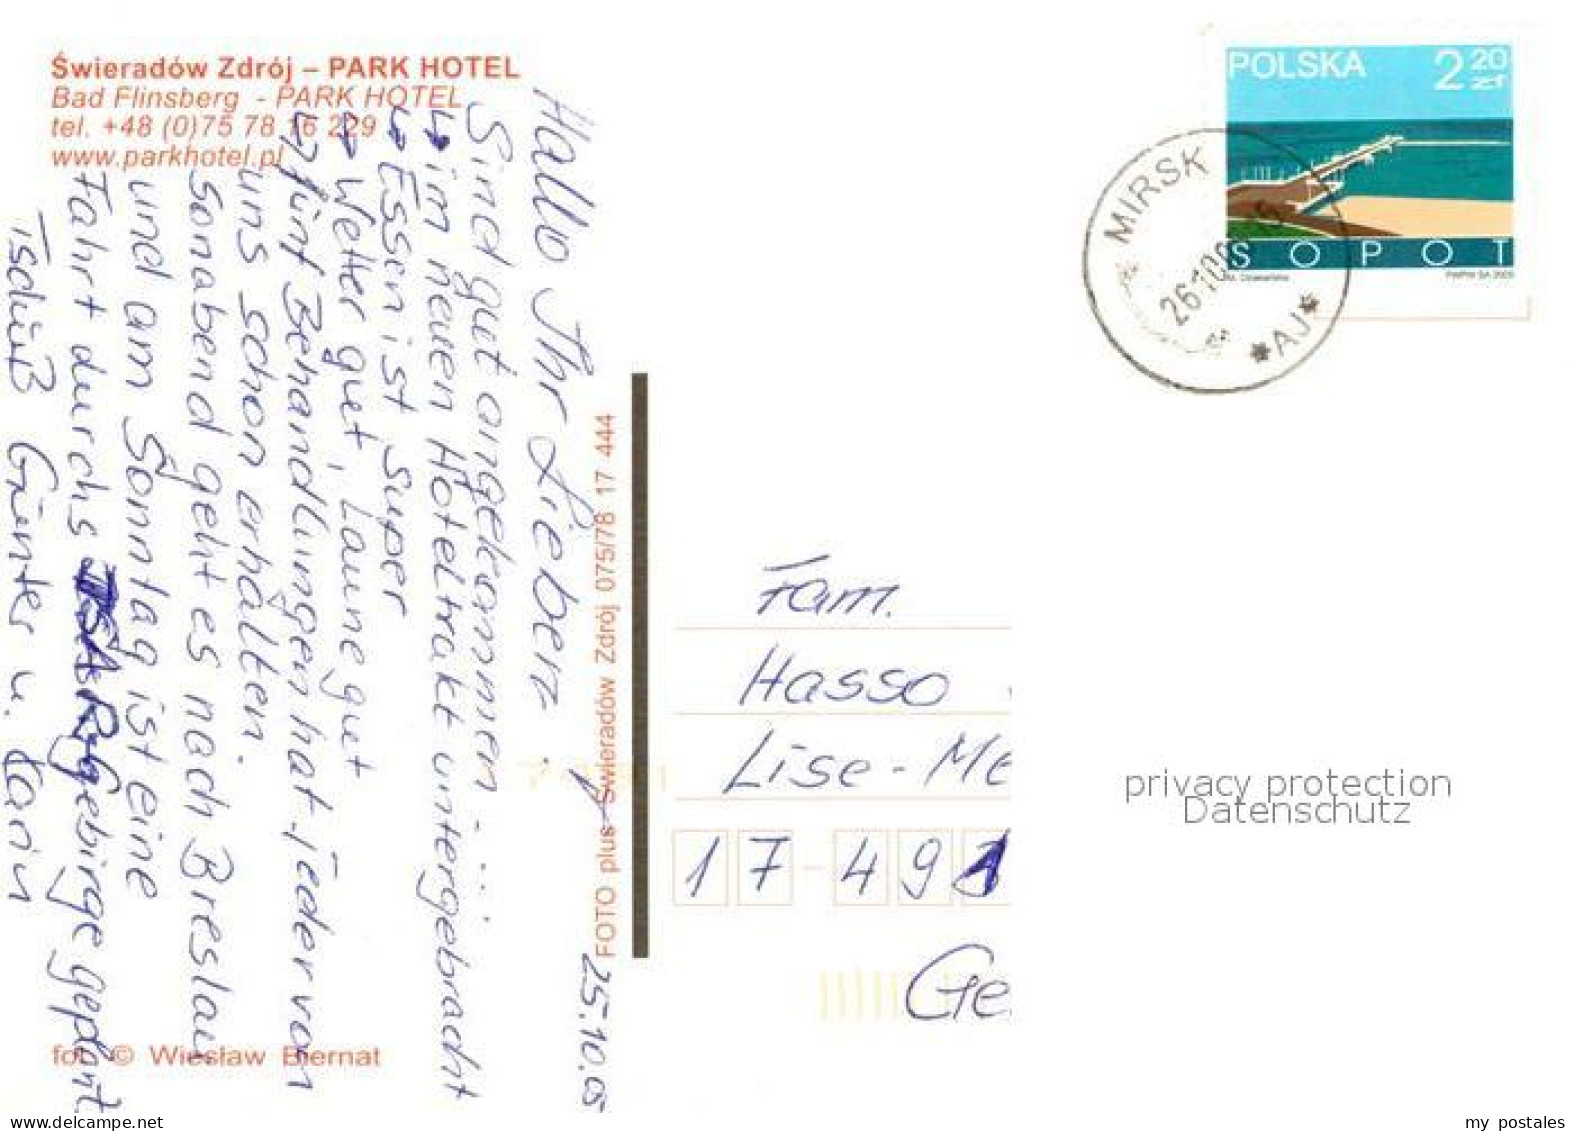 Świeradów Zdrój – PARK HOTEL
Bad Flinsberg - PARK HOTEL
tel. +48 (0)75 78 16 229
www.parkhotel.pl
25.10.05
Hallo Ihr Lieben.
Sind gut angekommen - ...
↳ im neuen Hoteltrakt untergebracht
↳ Essen ist Super
↳ Wetter gut, Laune gut
↳ fünf Behandlungen hat Jeder von
uns schon erhalten.
Sonabend geht es nach Breslau
und am Sonntag ist eine
Fahrt durchs ISARGebirge geplant
Tschüß Günter u. Karin
fot. © Wiesław Biernat
FOTO plus Świeradów Zdrój 075/78 17 444
POLSKA 2 20 zł
SOPOT
PWPW SA 2005
MIRSK
AJ
Fam.
Hasso
Lise-Me
17-491
Ge
privacy protection
Datenschutz
www.delcampe.net
my postales